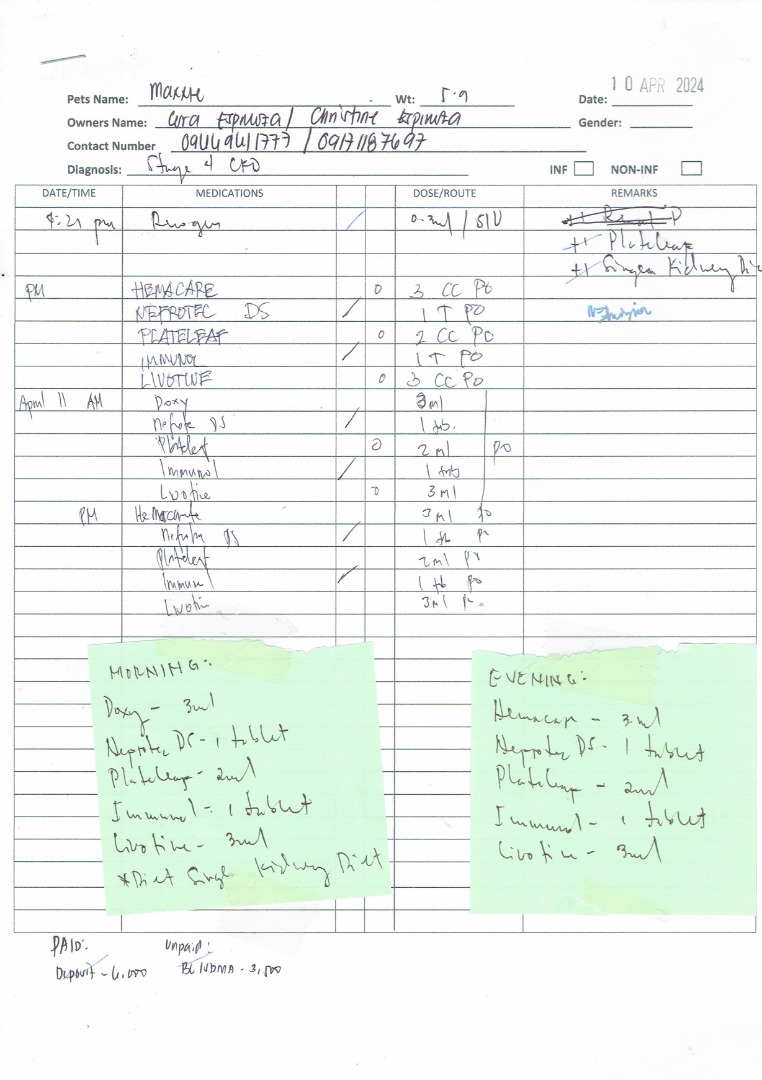 10 APR 2024
Pets Name: Maxxie Wt: 5.9 Date:
Owners Name: Espinoza / Christine Espinoza Gender:
Contact Number 09449411777 / 09171187697
Diagnosis: Stage 4 CKD INF NON-INF
DATE/TIME MEDICATIONS DOSE/ROUTE REMARKS
4:21 pm 0.3ml / SIV
++ Plateleap
++ Singen Kidney Die
PM HEMACARE 0 3 CC PO
NEFROTEC DS / 1 T PO
PLATELEAF 0 2 CC PO
IMMUNOL / 1 T PO
LIVOTINE 0 3 CC PO
April 11 AM Doxy 3ml
Nefrotec DS / 1 tb.
Plateleaf 0 2 ml PO
Immunol / 1 tab
Livotine 0 3 ml
PM Hemacare 3 ml PO
DS / 1 tb po
Plateleaf 2ml po
Immunol / 1 tb po
Livotin 3ml po
MORNING:
Doxy - 3ml
Neprotec DS - 1 tablet
Plateleap - 2ml
Immunol - 1 tablet
Livotine - 3ml
*Diet Singen Kidney Diet
EVENING:
Hemacap - 3ml
Neprotec DS - 1 tablet
Plateleap - 2ml
Immunol - 1 tablet
Livotine - 3ml
PAID: Unpaid:
Deposit - 6,000 3,500